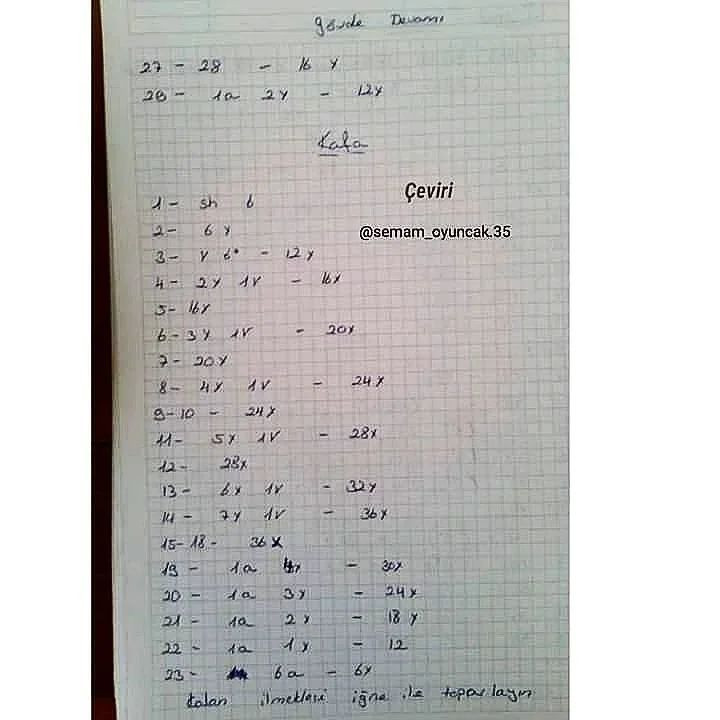 gövde Devamı
27 - 28 - 16 x
28 - 1a 2x - 12x
Kafa
Çeviri
1 - sh 6
@semam_oyuncak.35
2 - 6 x
3 - v 6* - 12 x
4 - 2x 1v - 16x
5 - 16x
6 - 3x 1v - 20x
7 - 20x
8 - 4x 1v - 24x
9-10 - 24x
11 - 5x 1v - 28x
12 - 28x
13 - 6x 1v - 32x
14 - 7x 1v - 36x
15-18 - 36 x
19 - 1a 4x - 30x
20 - 1a 3x - 24x
21 - 1a 2x - 18x
22 - 1a 1x - 12
23 - 6a - 6x
Kalan ilmekleri iğne ile toparlayın